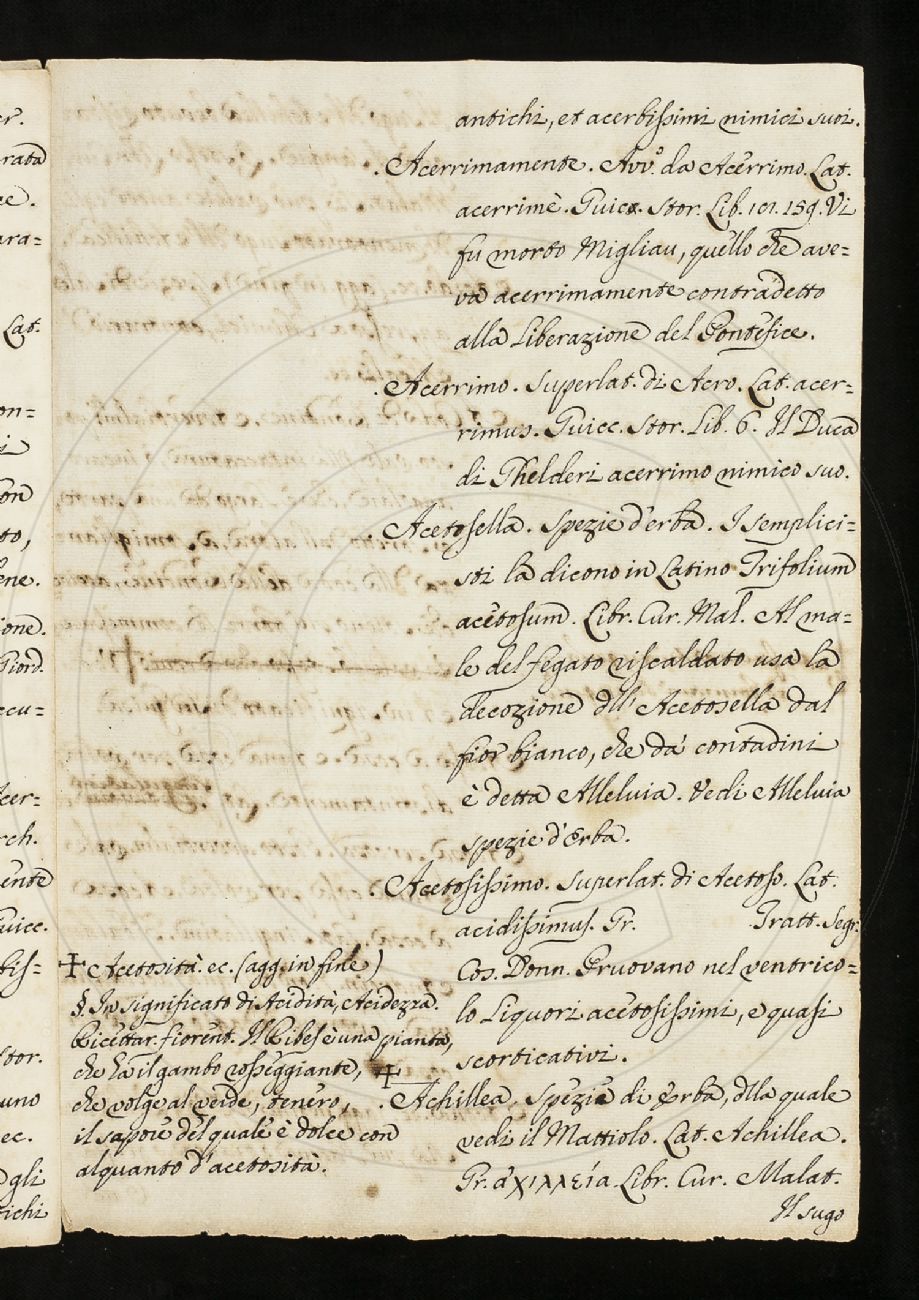 antichi, et acerbissimi nimici suoi.
Acerrimamente. Avv.º da Acerrimo. Lat.
acerrimè. Guicc. Stor. Lib. 101. 159. Vi
fu morto Migliau, quello che ave=
va acerrimamente contradetto
alla Liberazione del Pontefice.
Acerrimo. Superlat. di Acro. Lat. acer=
rimus. Guicc. Stor. Lib. 6. Il Duca
di Ghelderi acerrimo nimico suo.
Acetosella. Spezie d'erba. I semplici=
sti la dicono in Latino Trifolium
acetosum. Libr. Cur. Mal. Al ma=
le del fegato riscaldato usa la
decozione dll' Acetosella dal
fior bianco, che da' contadini
è detta Alleluia. Vedi Alleluia
spezie d'Erba.
Acetosissimo. Superlat. di Acetoso. Lat.
acidissimus. Gr. Tratt. Segr.
Cos. Donn. Pruovano nel ventrico=
lo Liquori acetosissimi, e quasi
scorticativi.
Achillea. Spezie di Erba, dlla quale
vedi il Mattiolo. Lat. Achillea.
Gr. ἀχιλλεία. Libr. Cur. Malat.
Il sugo
✢ Acetosità. ec. (agg. in fine)
§. In significato di Acidità, Acidezza.
Ricettar. fiorent. Il Ribes è una pianta,
che ha il gambo rosseggiante,
che volge al verde, tenero,
il sapore del quale è dolce con
alquanto d'acetosità.
✢
er.
rata
ara=
Lat.
on=
to,
ione.
Giord.
ecu=
Acer=
rch.
ente
Guicc.
bis=
Stor.
uno
ec.
gli
tichi